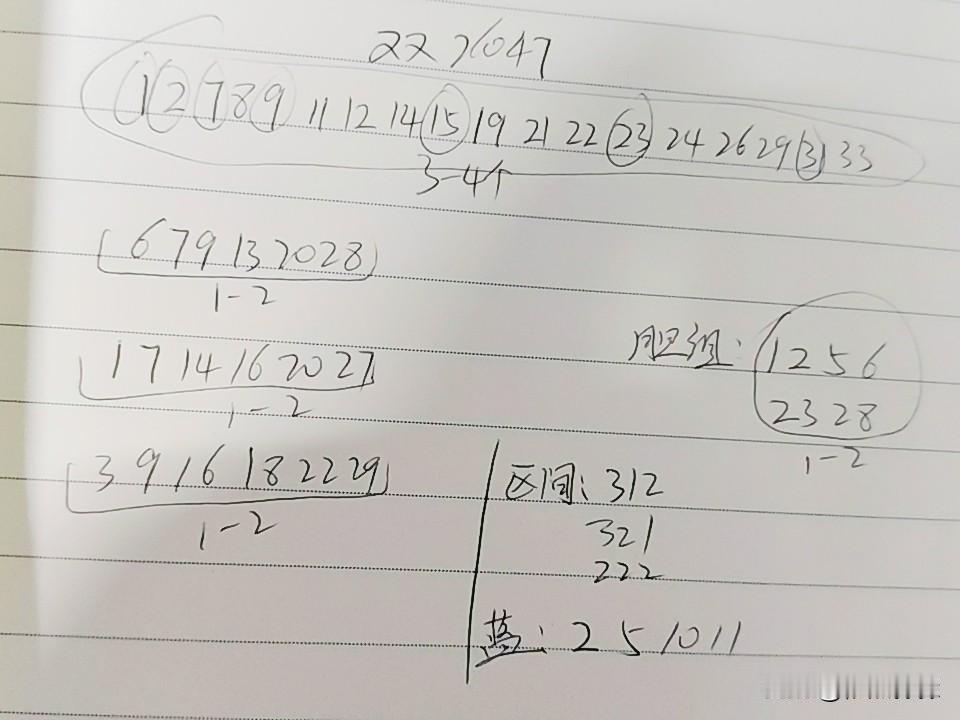 22047
1 2 7 8 9 11 12 14 15 19 21 22 23 24 26 29 31 33
3-4个
6 7 9 13 20 28
1-2
1 7 14 16 20 27
1-2
3 9 16 18 22 29
1-2
胆组: 1 2 5 6
23 28
1-2
区间: 312
321
222
蓝: 2 5 10 11